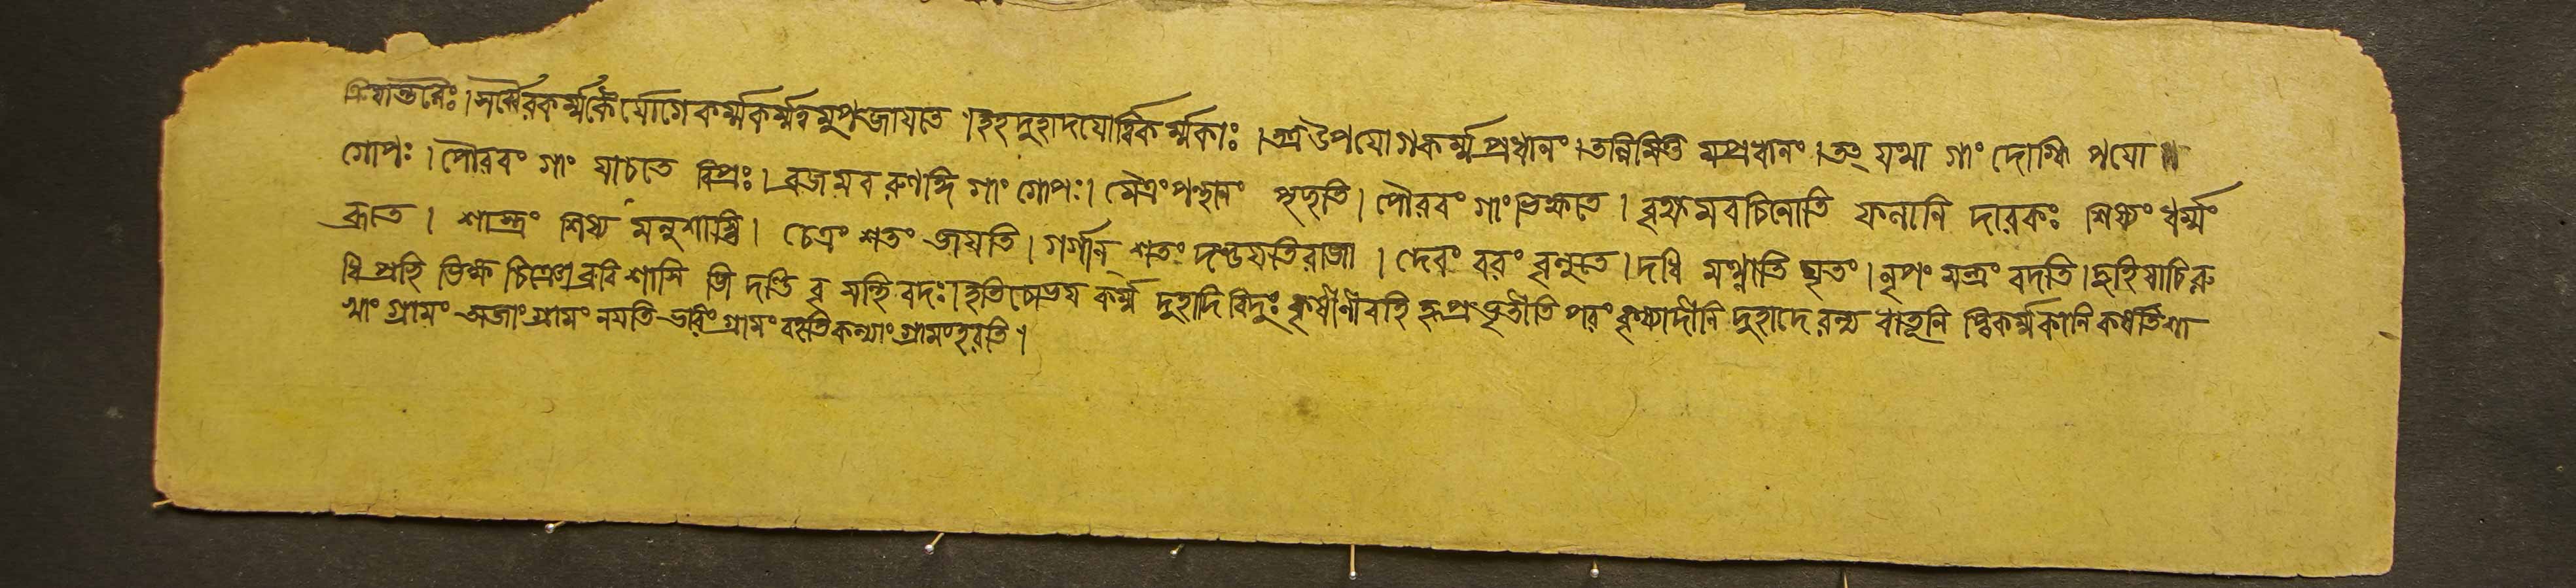 ক্রিয়ান্তরৈঃ। সর্ব্বৈরকর্ম্মকৈর্যোগে কর্ম্মকর্ম্মত্বমুপজায়তে। ইহ দুহাদয়োর্দ্বিকর্ম্মকাঃ। অত্র উপযোগকর্ম্ম প্রধানং। তন্নিমিত্ত মপ্রধানং। তৎ যথা গাং দোগ্ধি পয়ো॥
গোপঃ। পৌরবং গাং যাচতে বিপ্রঃ। ব্রজমবরুণদ্ধি গাং গোপঃ। মৈত্রং পন্থানং পৃচ্ছতি। পৌরবং গাং ভিক্ষতে। বৃক্ষমবচিনোতি ফলানি দারকঃ শিষ্যং ধর্ম্মং
ব্রূতে। শাস্ত্রং শিষ্য মনুশাস্তি। চৈত্রং শতং জয়তি। গর্গান্ শতং দণ্ডয়তি রাজা। দেবং বরং বৃনুতে। দধি মথ্নাতি ঘৃতং। নৃপং মন্ত্রং বদতি। দুহি যাচি রু
ধি প্রছি ভিক্ষ চিঞো ব্রুবি শাসি জি দণ্ডি বৃ মন্থি বদঃ। ইতি চোভয় কর্ম্ম দুহাদি বিদুঃ কৃষী নী বহি হৃ প্রভৃতীতি পরং কৃষ্যাদীনি দুহাদে রন্য ধাতূনি দ্বিকর্ম্মকানি কর্ষতি শা
খাং গ্রামং অজাং গ্রামং নয়তি ভারং গ্রামং বহতি কন্যাং গ্রামং হরতি।